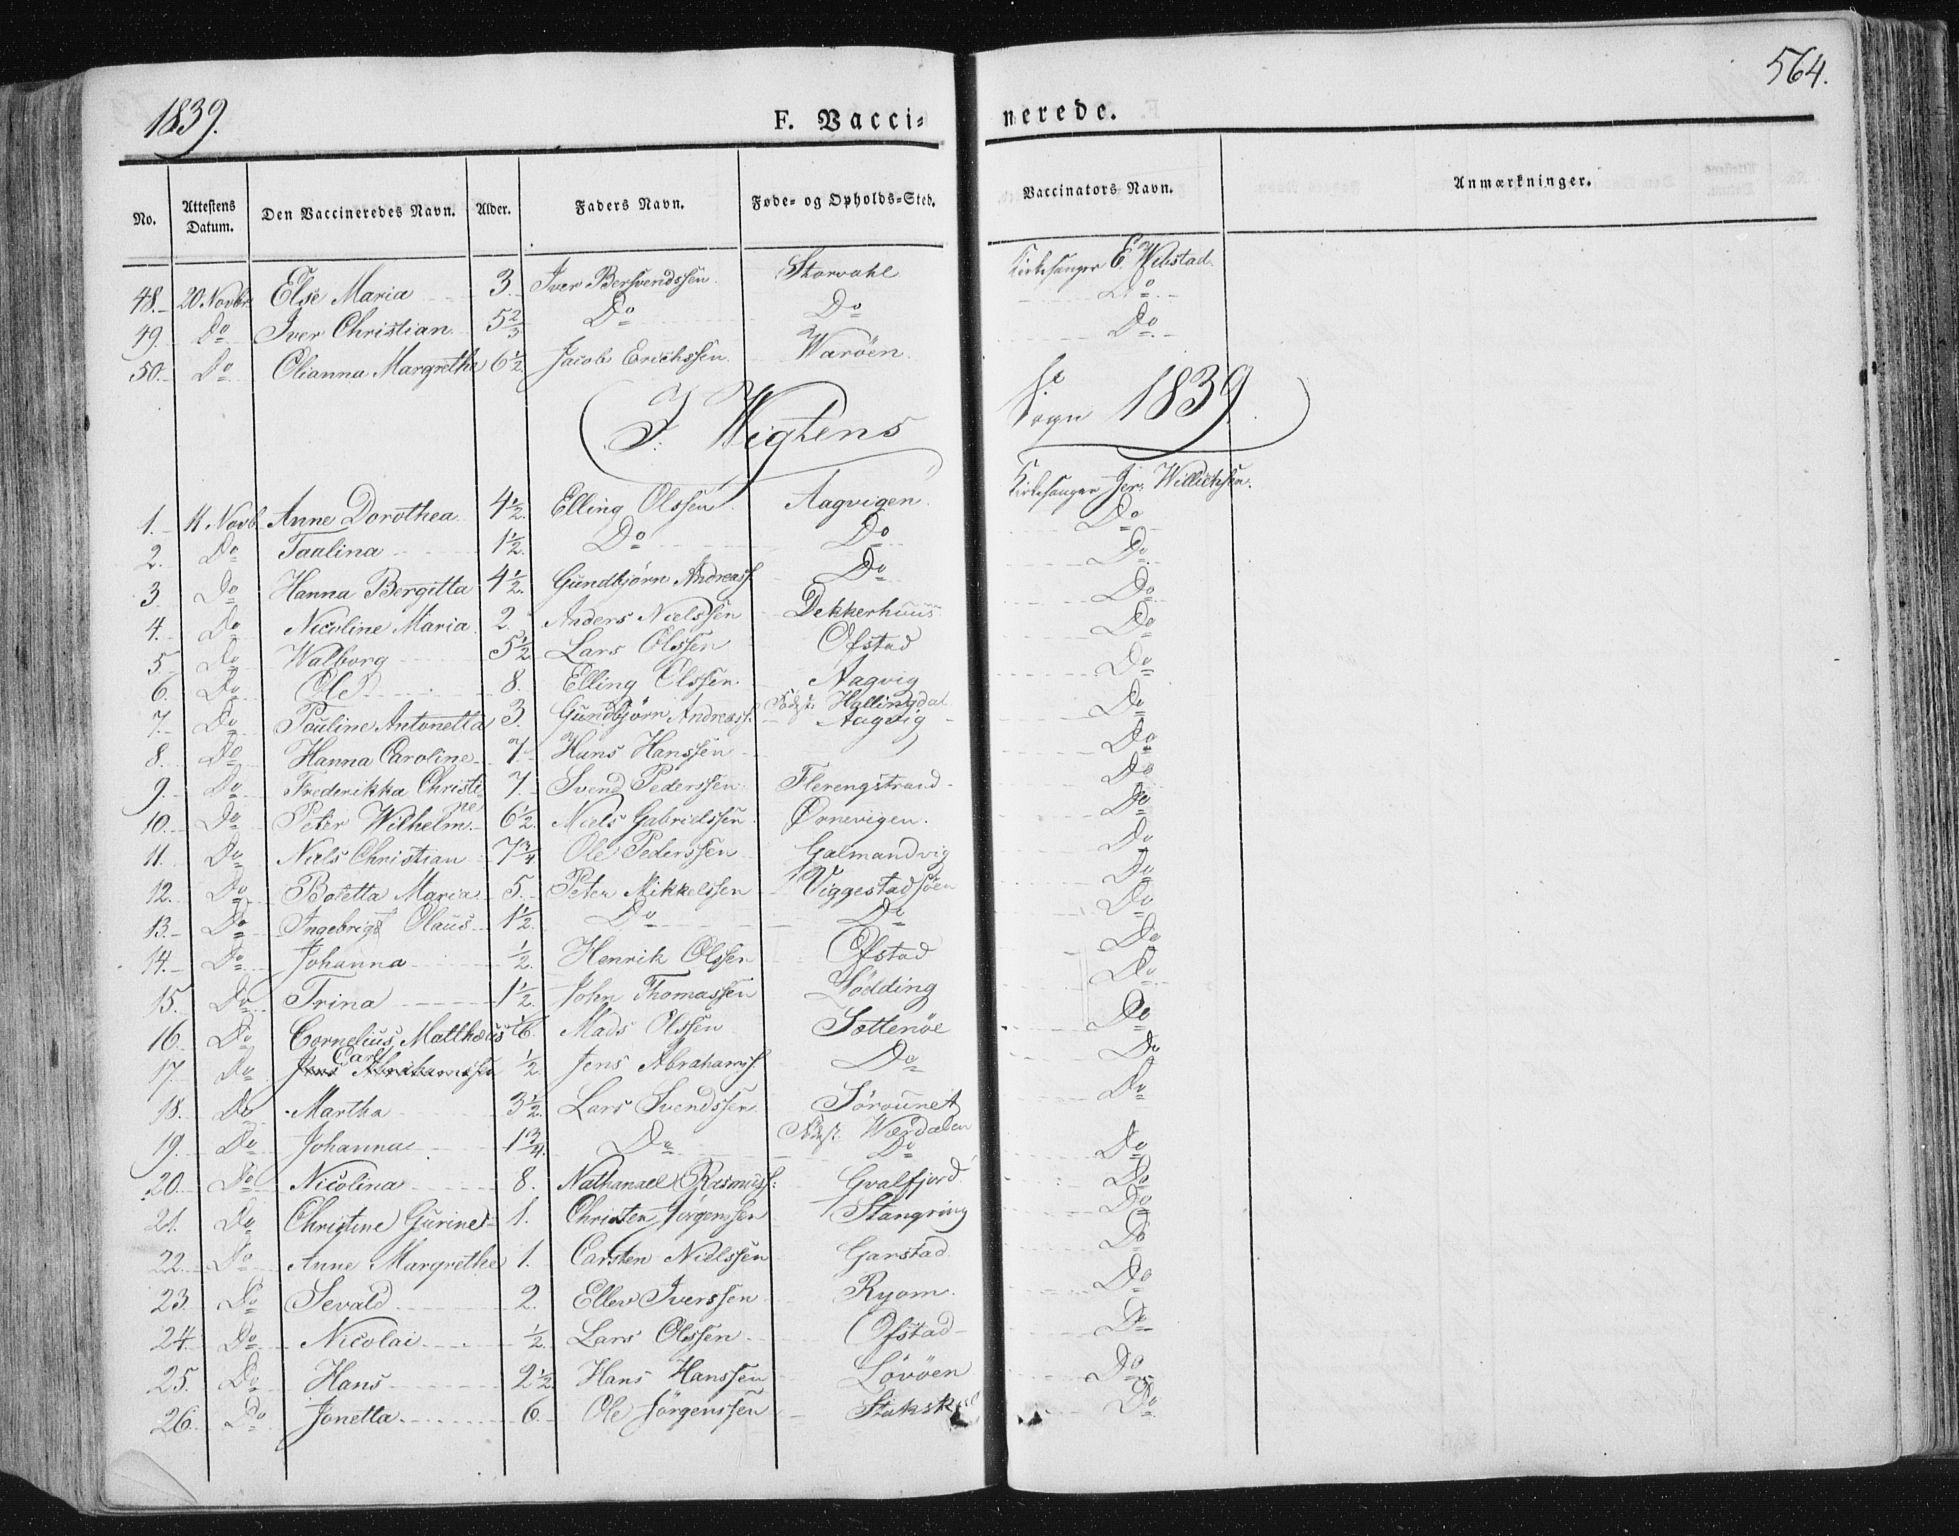 1839.
F. Vacci= nerede.
564.
No. Attestens Datum. Den Vaccineredes Navn. Alder. Faders Navn. Føde- og Opholds-Sted. Vaccinators Navn. Anmærkninger.
48. 20 Novbr Else Maria 3 Iver Bersvendssen Storvahl Kirkesanger E. Wibstad
49 Do Iver Christian 5 2/3 Do Do Do
50. Do Olianna Margretha 6 1/2 Jacob Erichssen Warøen Do
I Wigtens Sogn 1839
1. 11 Novb. Anne Dorothea 4 1/2 Elling Olssen Aagvigen Kirkesanger Jer: Willichsen.
2. Do Taalina 1 1/2 Do Do Do
3 Do Hanna Bergitta 4 1/2 Gundbjørn Andreass. Do Do
4. Do Nicoline Maria 2. Anders Nielssen Dekkerhuus Do
5 Do Walborg 5 1/2 Lars Olssen Ofstad Do
6. Do Ole 8. Elling Olssen Aagvig Do
7. Do Pauline Antonetta 3. Gundbjørn Andreass. Fødst: Hallingdal Aagvig Do
8. Do Hanna Caroline 7. Hans Hanssen Do
9. Do Frederikka Christine 7. Svend Pederssen Flerengstrand Do
10. Do Peter Wilhelm 6 1/2 Niels Gabrielssen Øvnevigen. Do
11. Do Niels Christian 7 3/4 Ole Pederssen Galmandvig Do
12. Do Boletta Maria 5. Peter Mikkelssen Viggestadsøen Do
13. Do Ingebrigt Olaus 1 1/2 Do Do Do
14. Do Johanna 1/2 Henrik Olssen Ofstad Do
15. Do Trina 1 1/2 John Thomassen Lødding Do
16. Do Cornelius Mathæus 1/6 Mads Olssen Sættenøe Do
17. Do Carl Jens Abrahamssen 1/2 Jens Abrahams. Do Do
18. Do Martha 3 1/2 Lars Svendssen Sørøunet Do
19. Do Johanna 1 3/4 Do Fødst. Wærdalen Do Do
20. Do Nicolina 8. Nathanael Rasmuss: Gvalfjord Do
21. Do Christine Gurine 1. Christen Jørgenssen Stangring Do
22. Do Anne Margrethe 1. Carsten Nielssen Garstad Do
23. Do Sevald 2. Ellev Iverssen Ryom. Do
24. Do Nicolai 1/2 Lars Olssen Ofstad Do
25. Do Hans 2 1/2 Hans Hanssen Løvøen Do
26. Do Jonetta 6 Ole Jørgenssen Do